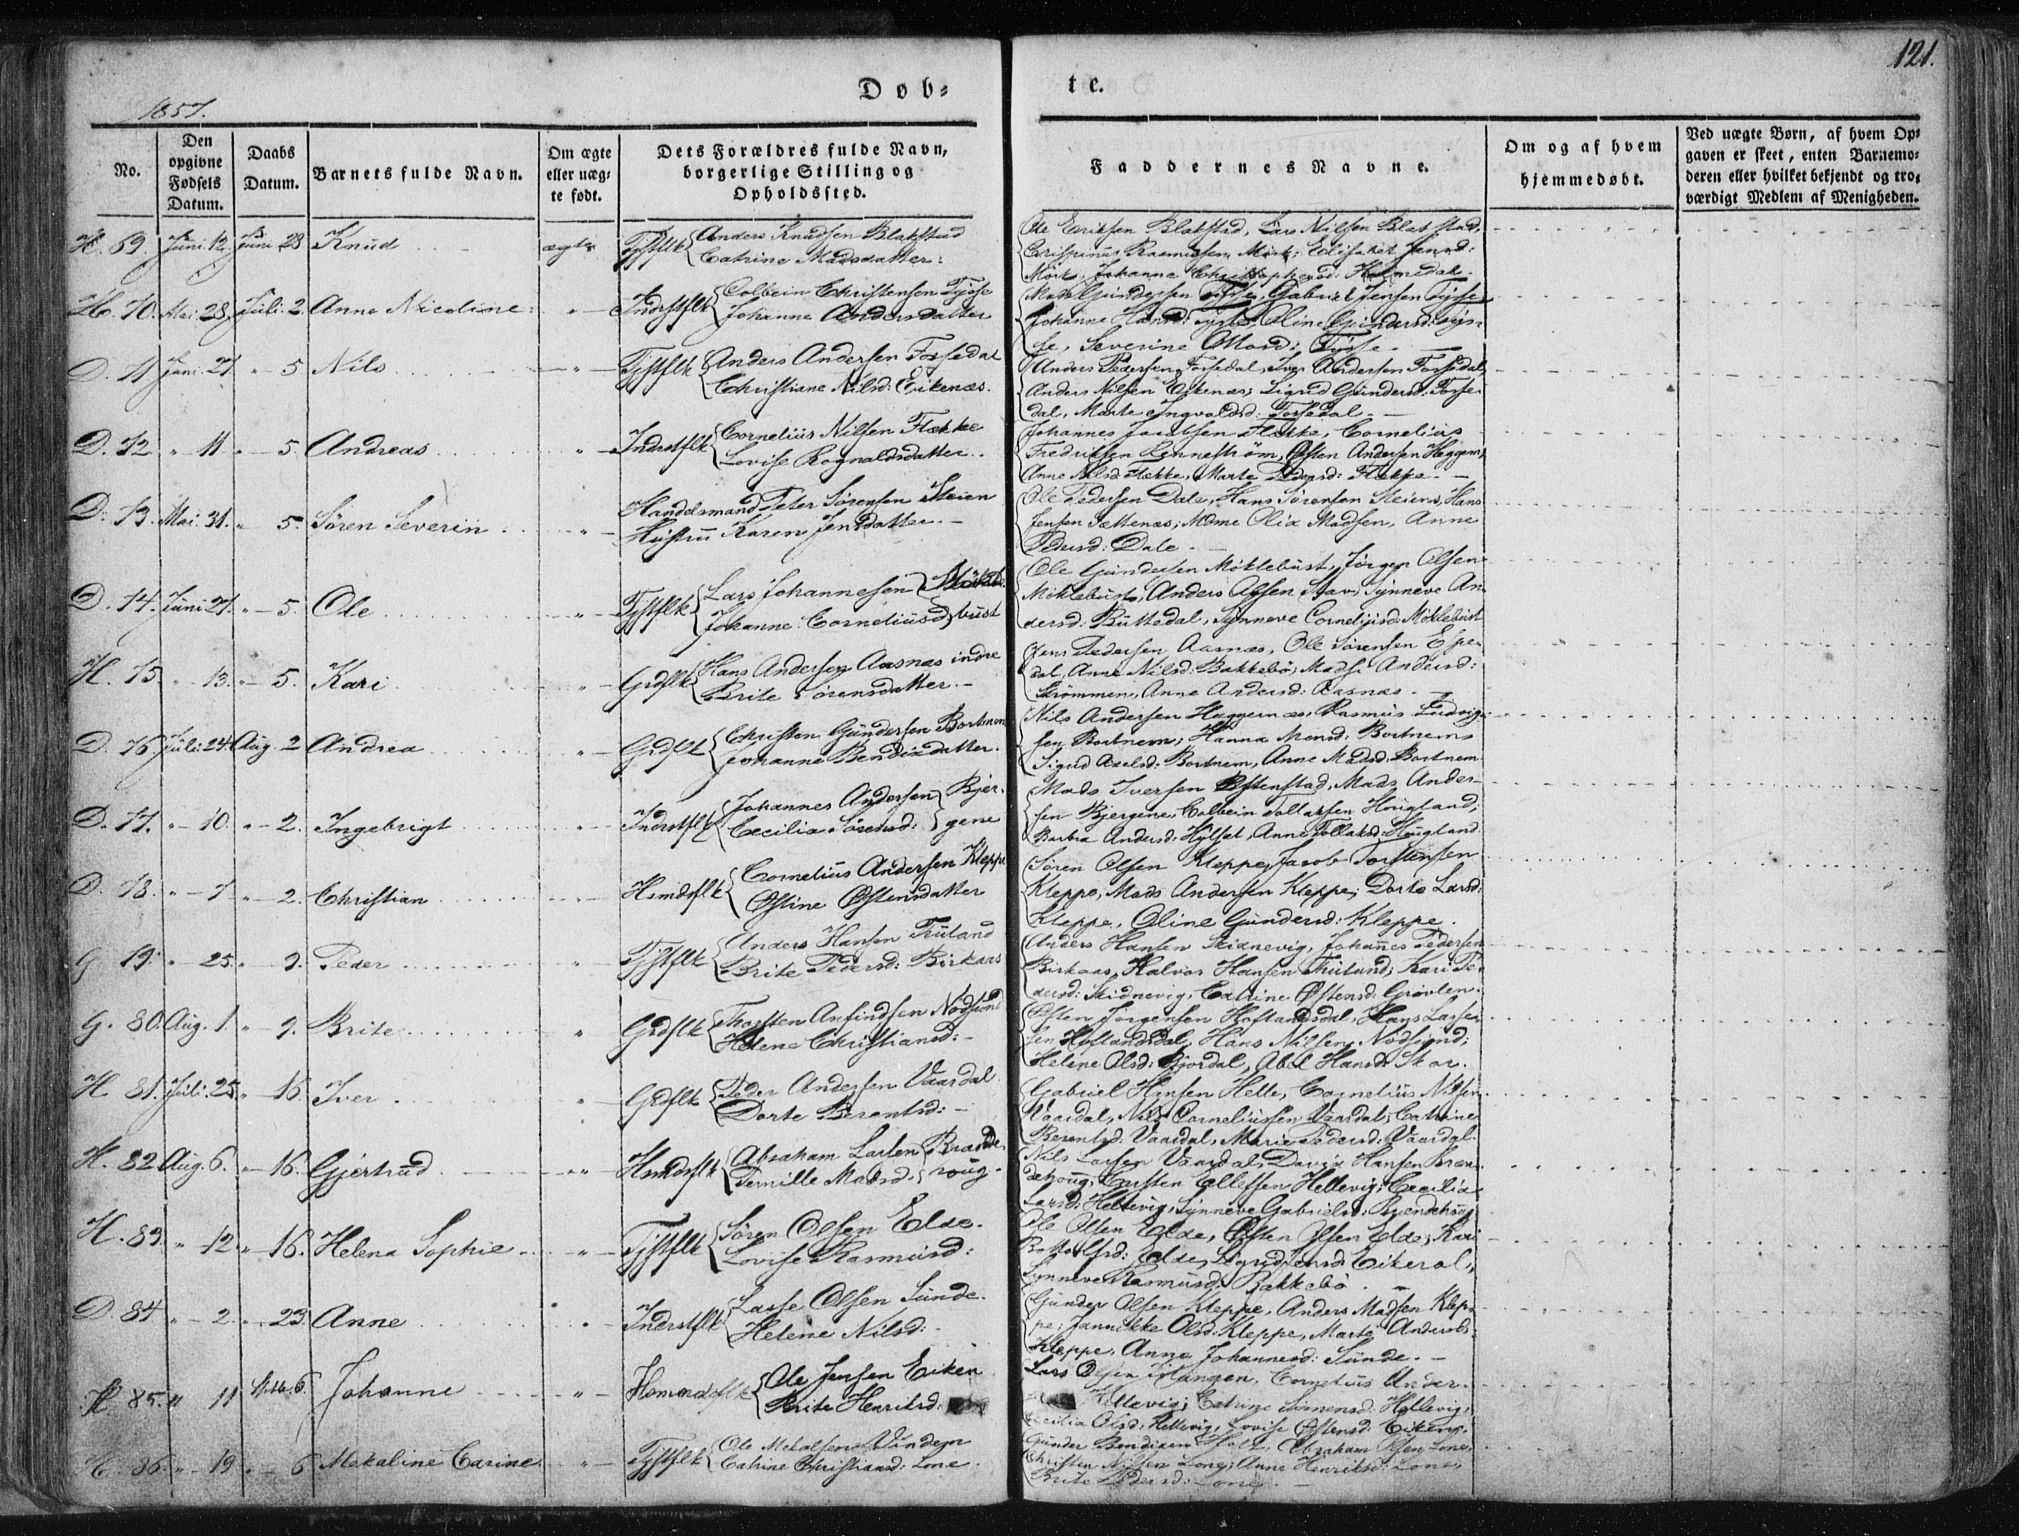 121.
Døb-
te.
1857.
No.
Den opgivne Fødsels Datum.
Daabs Datum.
Barnets fulde Navn.
Om ægte eller uægte født.
Dets Forældres fulde Navn, borgerlige Stilling og Opholdssted.
Faddernes Navne.
Om og af hvem hjemmedøbt.
Ved uægte Børn, af hvem Opgaven er skeet, enten Barnemoderen eller hvilket bekjendt og troværdigt Medlem af Menigheden.
H. 69. Juni 12. Juni 28 Knud ægte Tjstflk Anders Knudsen Blakstad
Catrine Madsdatter:
Ole Eriksen Blakstad, Lars Nilsen Blakstad,
Crisppinus Rasmussen Mørk; Elisabet Jensd:
Mørk, Johanne Christophersd: Holmedal.
H. 70. Mai. 28. Juli. 2. Anne Nicoline " Indrstflk Colbein Christensen Tysse
Johanne Andersdatter
Gundersen Tysse, Gabriel Jensen Tysse
Johanne Hansd: Tysse, Oline Gundersd: Tys-
se, Severine Olsd: Tysse.
D. 71 Juni. 21 " 5 Nils " Tjstflk Anders Andersen Fossedal
Christiane Nilsd: Eikenæs.
Anders Pedersen Fossedal, Iver Andersen Fossedal,
Anders Nilsen Eikenæs; Sigrid Gundersd: Fosse-
dal, Marte Ingvoldsd: Fossedal.
D. 72 " 11 " 5. Andreas " Indrstflk Cornelius Nilsen Flekke
Lovise Rognaldsdatter.
Johannes Jacobsen Flekke, Cornelius
Fredriksen Lennestrøm, Østen Andersen Heggem;
Anne Nilsd: Flekke, Marte Pedersd: Flekke.
D. 73. Mai. 31. " 5. Søren Severin " Handelsmand Peter Sørensen Steien
Hustru Karen Jensdatter.
Ole Pedersen Dale, Hans Sørensen Steien, Hans
Jensen Sættenæs; Mdme Olia Madsen, Anne
Pedersd: Dale.
D. 74. Juni 21. " 5. Ole " Tjstflk Lars Johannesen
Johanne Corneliusd: bust
Ole Gundersen Møklebust, Jørgen Olsen
Møklebust, Anders Olsen Stav; Synneve An-
dersd: Buttedal, Synneve Corneliusd: Møklebust
H. 75 " 13. " 5. Kari " Grdflk Hans Andersen Aasnæs indre
Brite Sørensdatter.
Jens Pedersen Aasnæs, Ole Sørensen Espe-
dal, Anne Nilsd: Bakkebø; Madse Andersd:
Strømmen, Anne Andersd: Aasnæs.
D. 76 Juli: 24. Aug. 2 Andrea " Grdflk Christen Gundersen Bortnem
Johanne Bendixdatter.
Nils Andersen Haggernæs, Rasmus Ludvig-
sen Bortnem; Hanna Monsd: Bortnem
Sigrid Axelsd: Bortnem, Anne Madsd: Bortnem
D. 77. " 10. " 2. Ingebrigt " Indrstflk Johannes Andersen
Cecilia Sørensd: Bjer-
gene
Mads Iversen Østenstad, Mads Ander-
sen Bjergene, Colbein Tollaksen Hougland;
Barbra Andersd: Hylset, Anne Tollaksd: Hougland
D. 78. " 7 " 2. Christian " Hsmdsflk Cornelius Andersen Kleppe
Østine Østensdatter
Søren Olsen Kleppe, Jacob Torstensen
Kleppe, Mads Andersen Kleppe; Dorte Larsd:
Kleppe, Oline Gundersd: Kleppe.
G. 79. " 25. " 9. Peder " Tjstflk Anders Hansen Fruland
Brite Pedersd: Birkaas
Anders Hansen Skidnevig, Johannes Pedersen
Birkaas, Halvor Hansen Fruland; Kari Pe-
dersd: Skidnevig, Catrine Østensd: Grøvlen.
G. 80. Aug. 1. " 9. Brite " Grdflk Thorsten Anfindsen Nødsund
Helene Christiansd:
Østen Jørgensen Hoftandsdal, Hans Larsen
Hoftandsdal, Hans Nilsen Nødsund;
Helene Olsd: Bjordal, Abel Hansd: Skor.
H. 81. Juli. 25 " 16 Iver " Grdflk Peder Andersen Vaardal
Dorte Berentsd:
Gabriel Hansen Helle, Cornelius Nilsen
Vaardal, Nils Corneliussen Vaardal; Catrine
Berentsd: Vaardal, Marie Pedersd: Vaardal.
H. 82 Aug. 6. " 16. Gjertrud " Hsmdsflk Abraham Larsen
Pernille Madsd. Brænde
houg.
Nils Larsen Vaardal, David Hansen Bræn-
dehoug, Carsten Ellefsen Hellevig; Cecilia
Larsd: Hellevig, Synneve Gabrielsd: Brændehoug
H. 83. " 12. " 16. Helena Sophie " Tjstflk Søren Olsen Elde.
Lovise Rasmusd:
Ole Olsen Elde, Østen Olsen Elde; Kari
Bottolfsd: Elde, Sigrid Jensd: Eikerol,
Synneve Rasmusd: Bakkebø
D. 84 " 2 " 23. Anne " Indrstflk Lasse Olsen Sunde.
Helene Nilsd:
Gunder Olsen Kleppe, Anders Madsen Klep-
pe; Jannikke Olsd: Kleppe, Marte Andersd:
Kleppe, Anne Johannesd: Sunde.
H. 85. " 11 6. Johanne " Ole Jensen Eiken
Brite Henriksd:
Lars Olsen Cornelius Ander-
Hellevig; Catrine Simensd: Hellevig,
Cecilia Olsd: Hellevig, Lovise Østensd: Eiken
H. 86. " 19 " 6 Mekaline Carine " Tjstflk Ole Mekalsen
Catrine Christiansd: Lone.
Gunder Bendixen Abraham Olsen Lone,
Christen Nilsen Lone; Anne Henriksd: Lone,
Brite Pedersd: Lone.